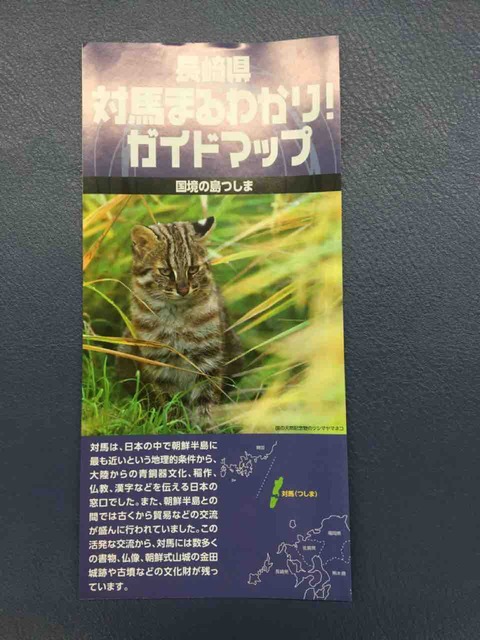 長崎県
対馬まるわかり!
ガイドマップ
国境の島つしま
国の天然記念物のツシマヤマネコ
対馬は、日本の中で朝鮮半島に
最も近いという地理的条件から、
大陸からの青銅器文化、稲作、
仏教、漢字などを伝える日本の
窓口でした。また、朝鮮半島との
間では古くから貿易などの交流
が盛んに行われていました。この
活発な交流から、対馬には数多く
の書物、仏像、朝鮮式山城の金田
城跡や古墳などの文化財が残っ
ています。
韓国
対馬(つしま)
福岡県
佐賀県
長崎県
熊本県